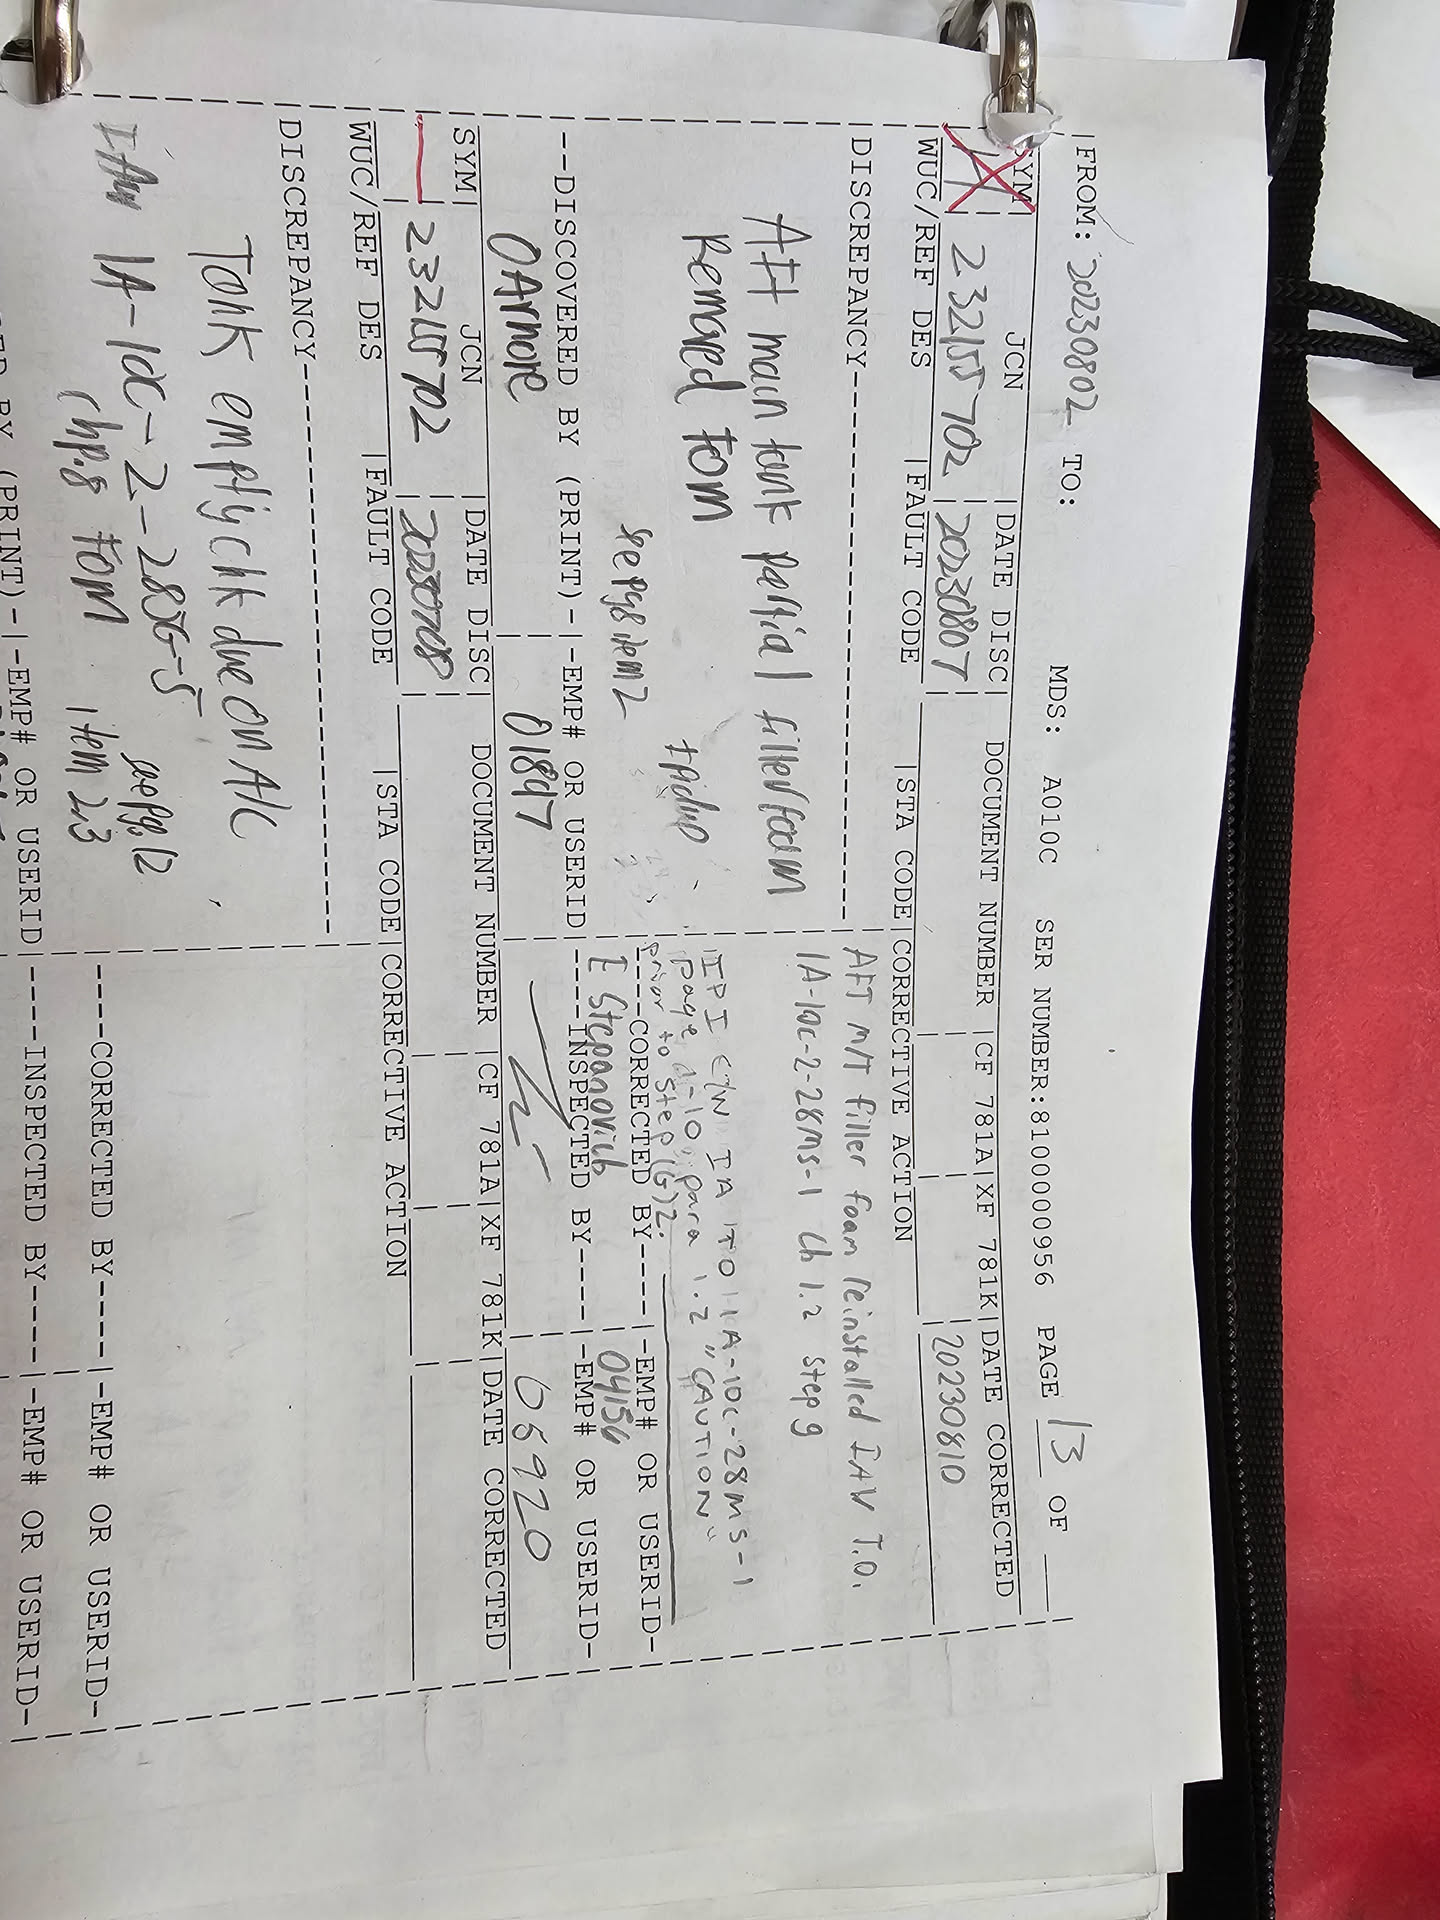 FROM: 20230802 TO: MDS: A010C SER NUMBER:8100000956 PAGE 13 OF
SYM JCN |DATE DISC| DOCUMENT NUMBER |CF 781A|XF 781K|DATE CORRECTED
232155702 |20230807| |20230810
WUC/REF DES |FAULT CODE |STA CODE|CORRECTIVE ACTION
DISCREPANCY
AFT M/T filler foam reinstalled IAW T.O.
1A-10C-2-28MS-1 Ch 1.2 step 9
Aft main tank partial filler foam
Removed FOM
IPI C/W IA TO 1A-10C-28MS-1
page 1-10, para 1.2 "CAUTION"
prior to step (6)2.
see pg8 item2
----CORRECTED BY----|-EMP# OR USERID-
I Stepanovich 04156
--DISCOVERED BY (PRINT)-|-EMP# OR USERID|----INSPECTED BY----|-EMP# OR USERID-
01897 05920
SYM| JCN |DATE DISC| DOCUMENT NUMBER |CF 781A|XF 781K|DATE CORRECTED
232155702
WUC/REF DES |FAULT CODE |STA CODE|CORRECTIVE ACTION
DISCREPANCY
Tank empty cht due on A/C
1A-10C-2-28JG-5 see pg. 12
chp.8 FOM item 2,3
----CORRECTED BY----|-EMP# OR USERID-
BY (PRINT)-|-EMP# OR USERID|----INSPECTED BY----|-EMP# OR USERID-